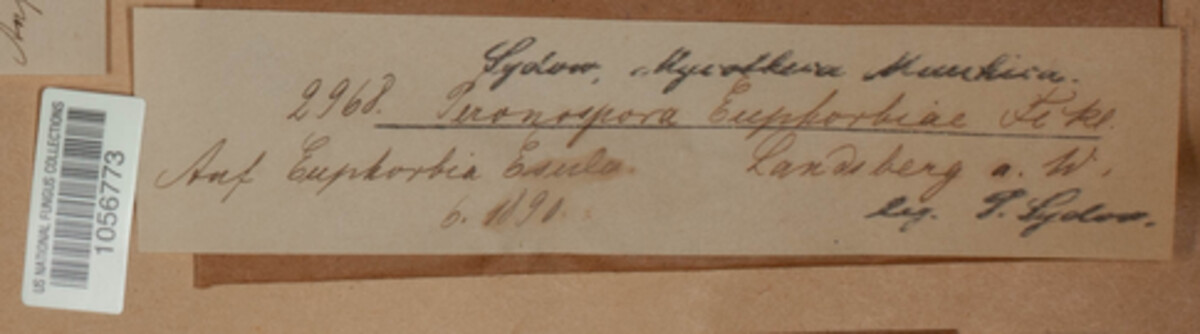 Sydow, Mycotheca Marchica.
2968. Peronospora Euphorbiae Fckl.
Auf Euphorbia Esula. Landsberg a. W.
6. 1890.
leg. P. Sydow.
US NATIONAL FUNGUS COLLECTIONS
1056773